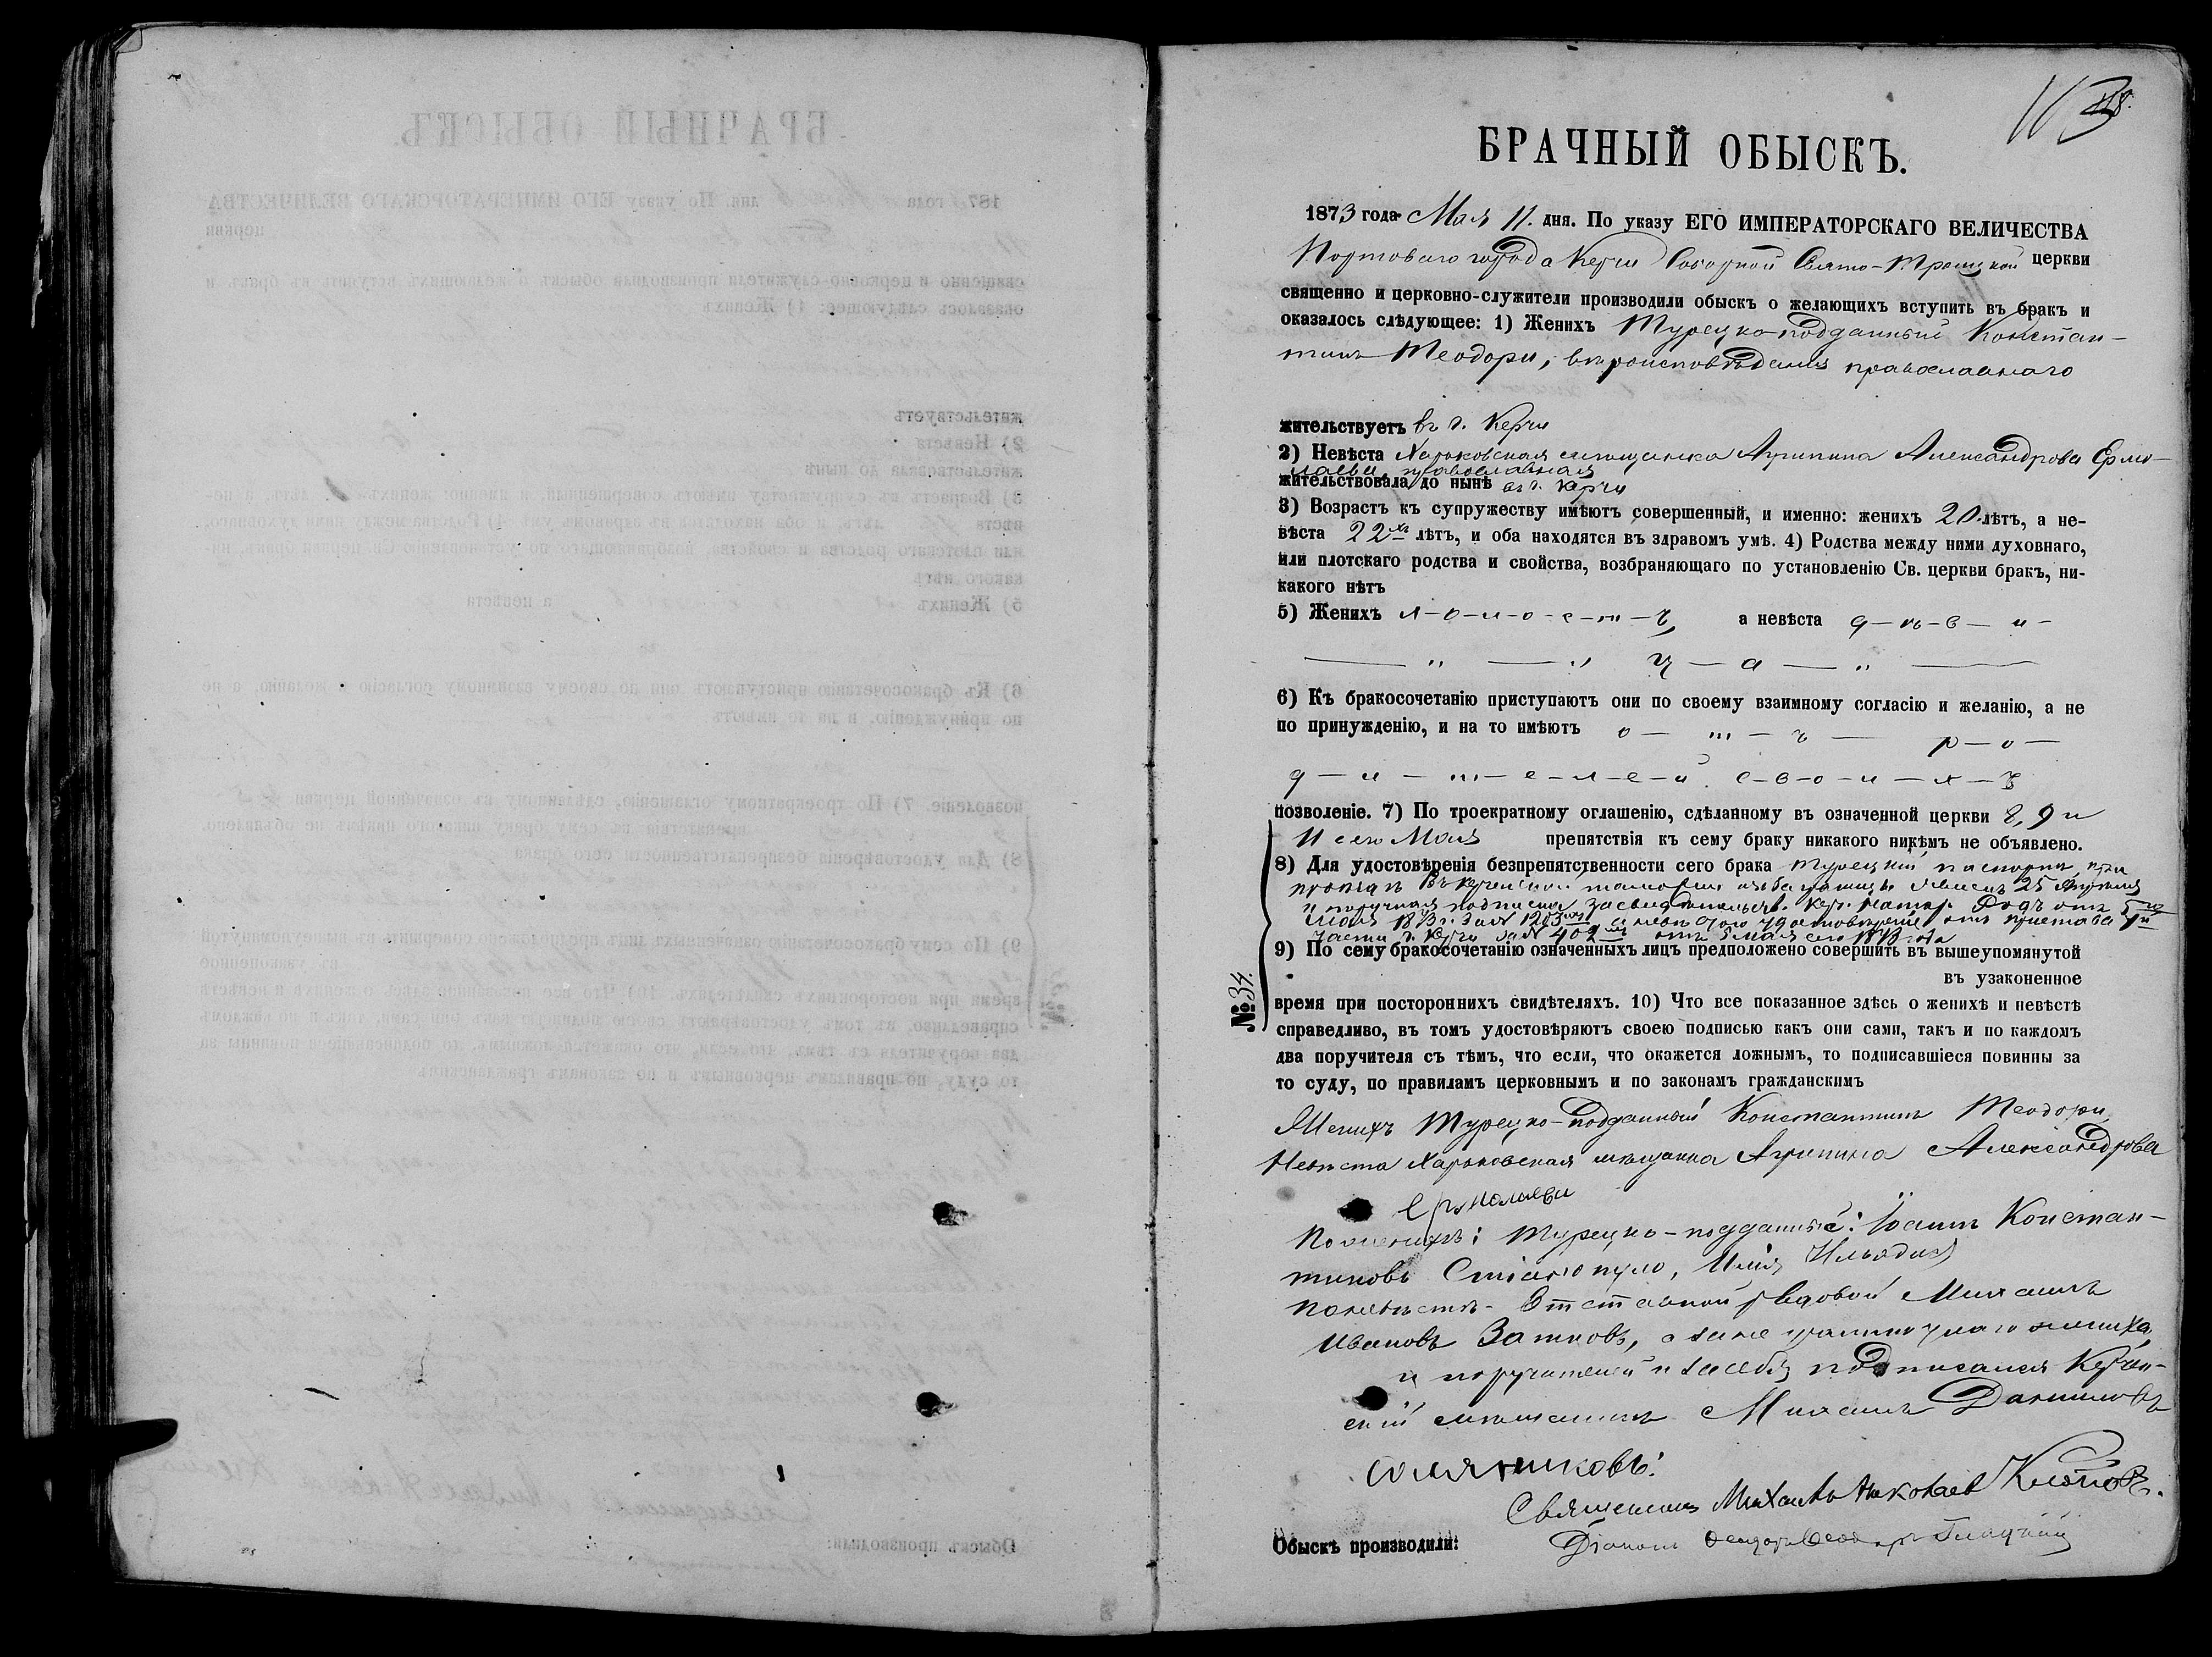 БРАЧНЫЙ ОБЫСКЪ.
1873 года Мая 11. дня. По указу ЕГО ИМПЕРАТОРСКАГО ВЕЛИЧЕСТВА
Портоваго города Керчи Соборной Свято-Троицкой церкви
священно и церковно-служители производили обыскъ о желающихъ вступить въ бракъ и
оказалось слѣдующее: 1) Женихъ Турецко-подданный Констан-
тинъ Теодори, вѣроисповѣданія православнаго
жительствуетъ въ г. Керчи
2) Невѣста Харьковская мѣщанка Агрипина Александрова Ермо-
лаева, православная
жительствовала до нынѣ въ г. Керчи
3) Возрастъ къ супружеству имѣютъ совершенный, и именно: женихъ 20 лѣтъ, а не-
вѣста 22хъ лѣтъ, и оба находятся въ здравомъ умѣ. 4) Родства между ними духовнаго,
или плотскаго родства и свойства, возбраняющаго по установленію Св. церкви бракъ, ни-
какого нѣтъ
5) Женихъ х-о-л-о-с-т-ъ, а невѣста д-ѣ-в-и-
— „ — „ ц — а — „ —
6) Къ бракосочетанію приступаютъ они по своему взаимному согласію и желанію, а не
по принужденію, и на то имѣютъ о — т — ъ — р — о —
д — и — т — е — л — е — й с — в — о — и — х — ъ
позволеніе. 7) По троекратному оглашенію, сдѣланному въ означенной церкви 8, 9 и
11 сего Мая препятствія къ сему браку никакого никѣмъ не объявлено.
8) Для удостовѣренія безпрепятственности сего брака турецкій паспортъ,
въ керченской таможни 25 Апрѣля
и поручная подписка Керч. отъ 5го
Мая 1873 г. за № 1203 удостовѣреніе отъ пристава 1й
части г. Керчи за № 402 отъ 5 мая сего 1873 года
9) По сему бракосочетанію означенныхъ лицъ предположено совершить въ вышеупомянутой
въ узаконенное
время при постороннихъ свидѣтеляхъ. 10) Что все показанное здѣсь о женихѣ и невѣстѣ
справедливо, въ томъ удостовѣряютъ своею подписью какъ они сами, такъ и по каждомъ
два поручителя съ тѣмъ, что если, что окажется ложнымъ, то подписавшіеся повинны за
то суду, по правиламъ церковнымъ и по законамъ гражданскимъ
№ 34.
Женихъ Турецко-подданный Константинъ Теодори,
Невѣста Харьковская мѣщанка Агрипина Александрова
Ермолаева
По женихѣ: турецко-подданные: Іоаннъ Констан-
тиновъ, Илія Ильядис
По невѣстѣ- Отставной рядовой Михаилъ
Ивановъ Затковъ, а за неграмотнаго жениха,
и поручителей и за себя подписался Керчен-
скій мѣщанинъ Михаилъ Даниловъ
Священникъ Михаилъ Николаев
Обыскъ производили: Діаконъ